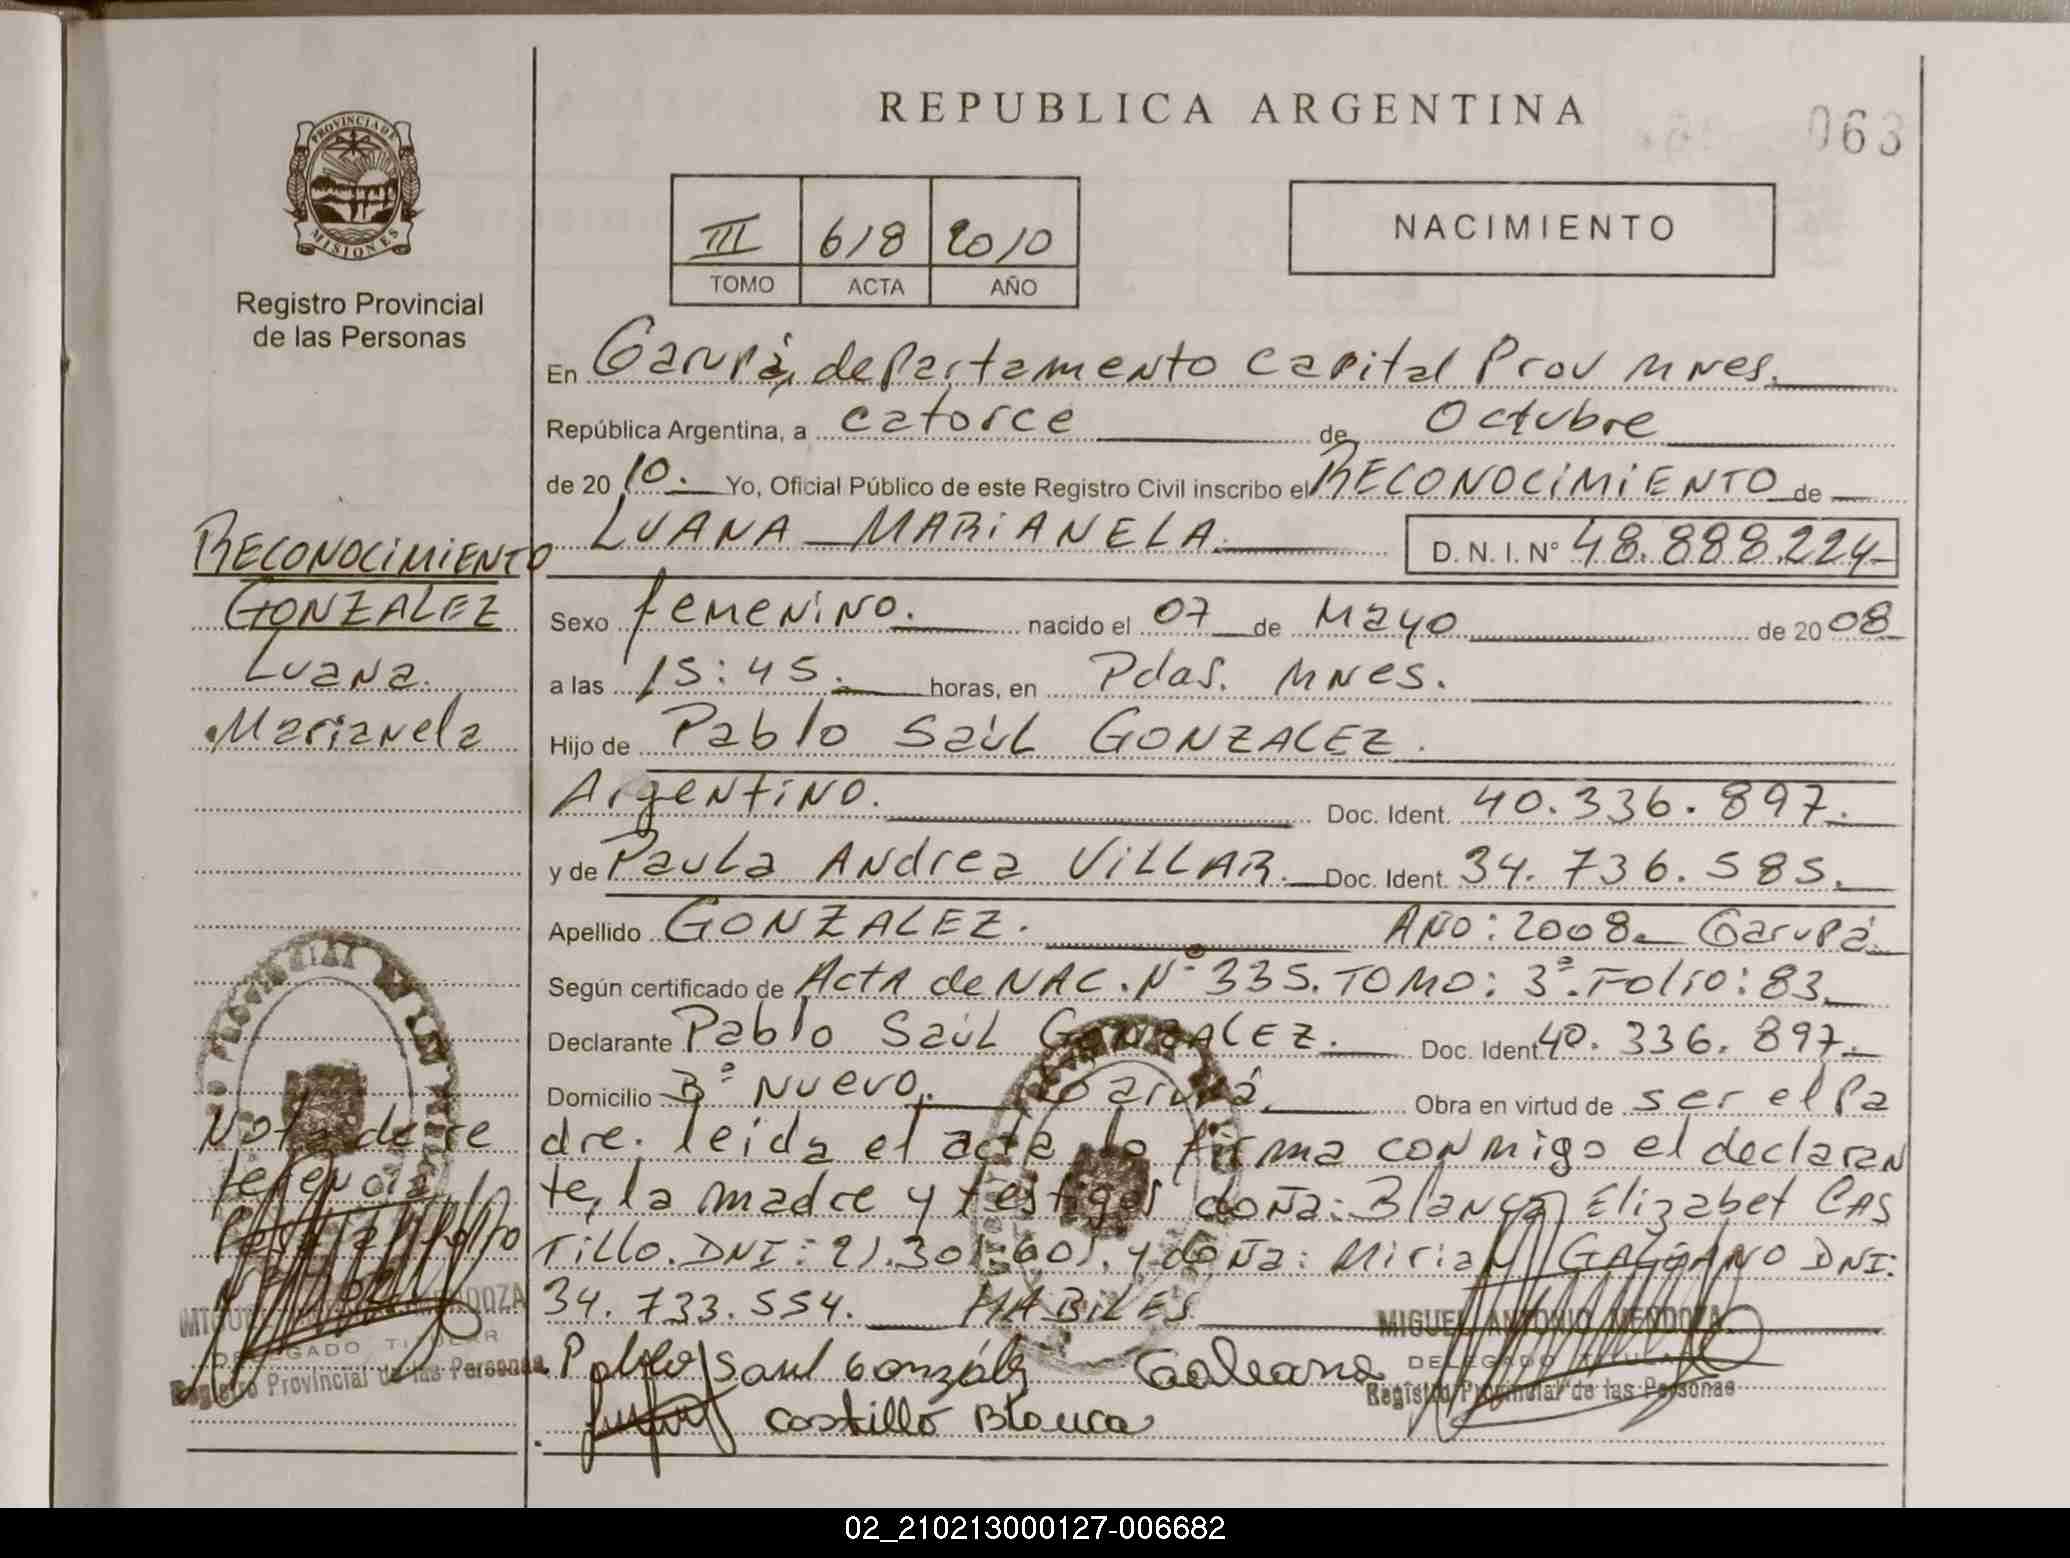 REPUBLICA ARGENTINA
063
PROVINCIA DE
MISIONES
Registro Provincial
de las Personas
III 618 2010
TOMO ACTA AÑO
NACIMIENTO
En Garupá, departamento Capital Prov Mnes.
República Argentina, a catorce de Octubre
de 2010. Yo, Oficial Público de este Registro Civil inscribo el RECONOCIMIENTO de
LUANA MARIANELA. D. N. I. N° 48.888.224
Sexo femenino. nacido el 07 de Mayo de 2008
a las 15:45. horas, en Pdas. Mnes.
Hijo de Pablo Saúl GONZALEZ.
Argentino. Doc. Ident. 40.336.897.
y de Paula Andrea VILLAR. Doc. Ident. 34.736.585.
Apellido GONZALEZ. Año: 2008. Garupá
Según certificado de Acta de NAC. Nº 335. TOMO: 3º. Folio: 83
Declarante Pablo Saúl GONZALEZ. Doc. Ident 40.336.897.
Domicilio Bº Nuevo. Garupá Obra en virtud de ser el Pa
dre. leida el acta la firma conmigo el declaran
te, la madre y testigos doña: Blanca Elizabet CAS
Tillo. DNI: 21.301.601. y doña: Mirian GALEANO DNI:
34.733.554. HABILES
Pablo Saul González Galeana
Castillo Blanca
MIGUEL ANTONIO MENDOZA
DELEGADO TITULAR
Registro Provincial de las Personas
RECONOCIMIENTO
GONZALEZ
Luana
Marianela
Nota de re
ferencia
MENDOZA
DELEGADO TITULAR
Registro Provincial de las Personas
02_210213000127-006682